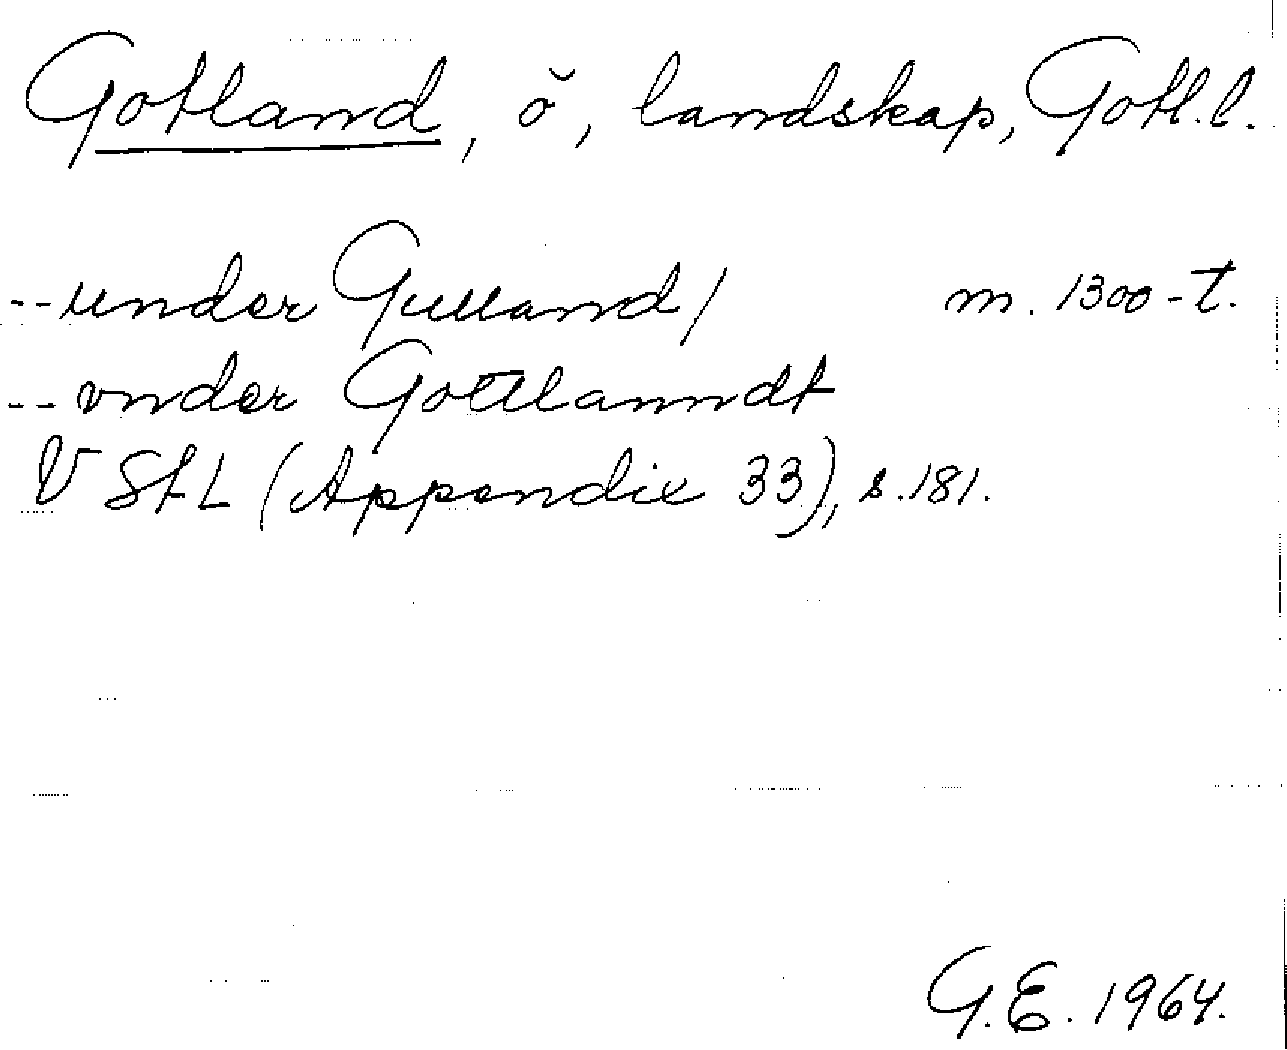 Gotland, ö, landskap, Gotl. l.
-- under Gulland / m. 1300-t.
-- vnder Gottlanndt
V StL (Appendix 33), s. 181.
G.E. 1964.